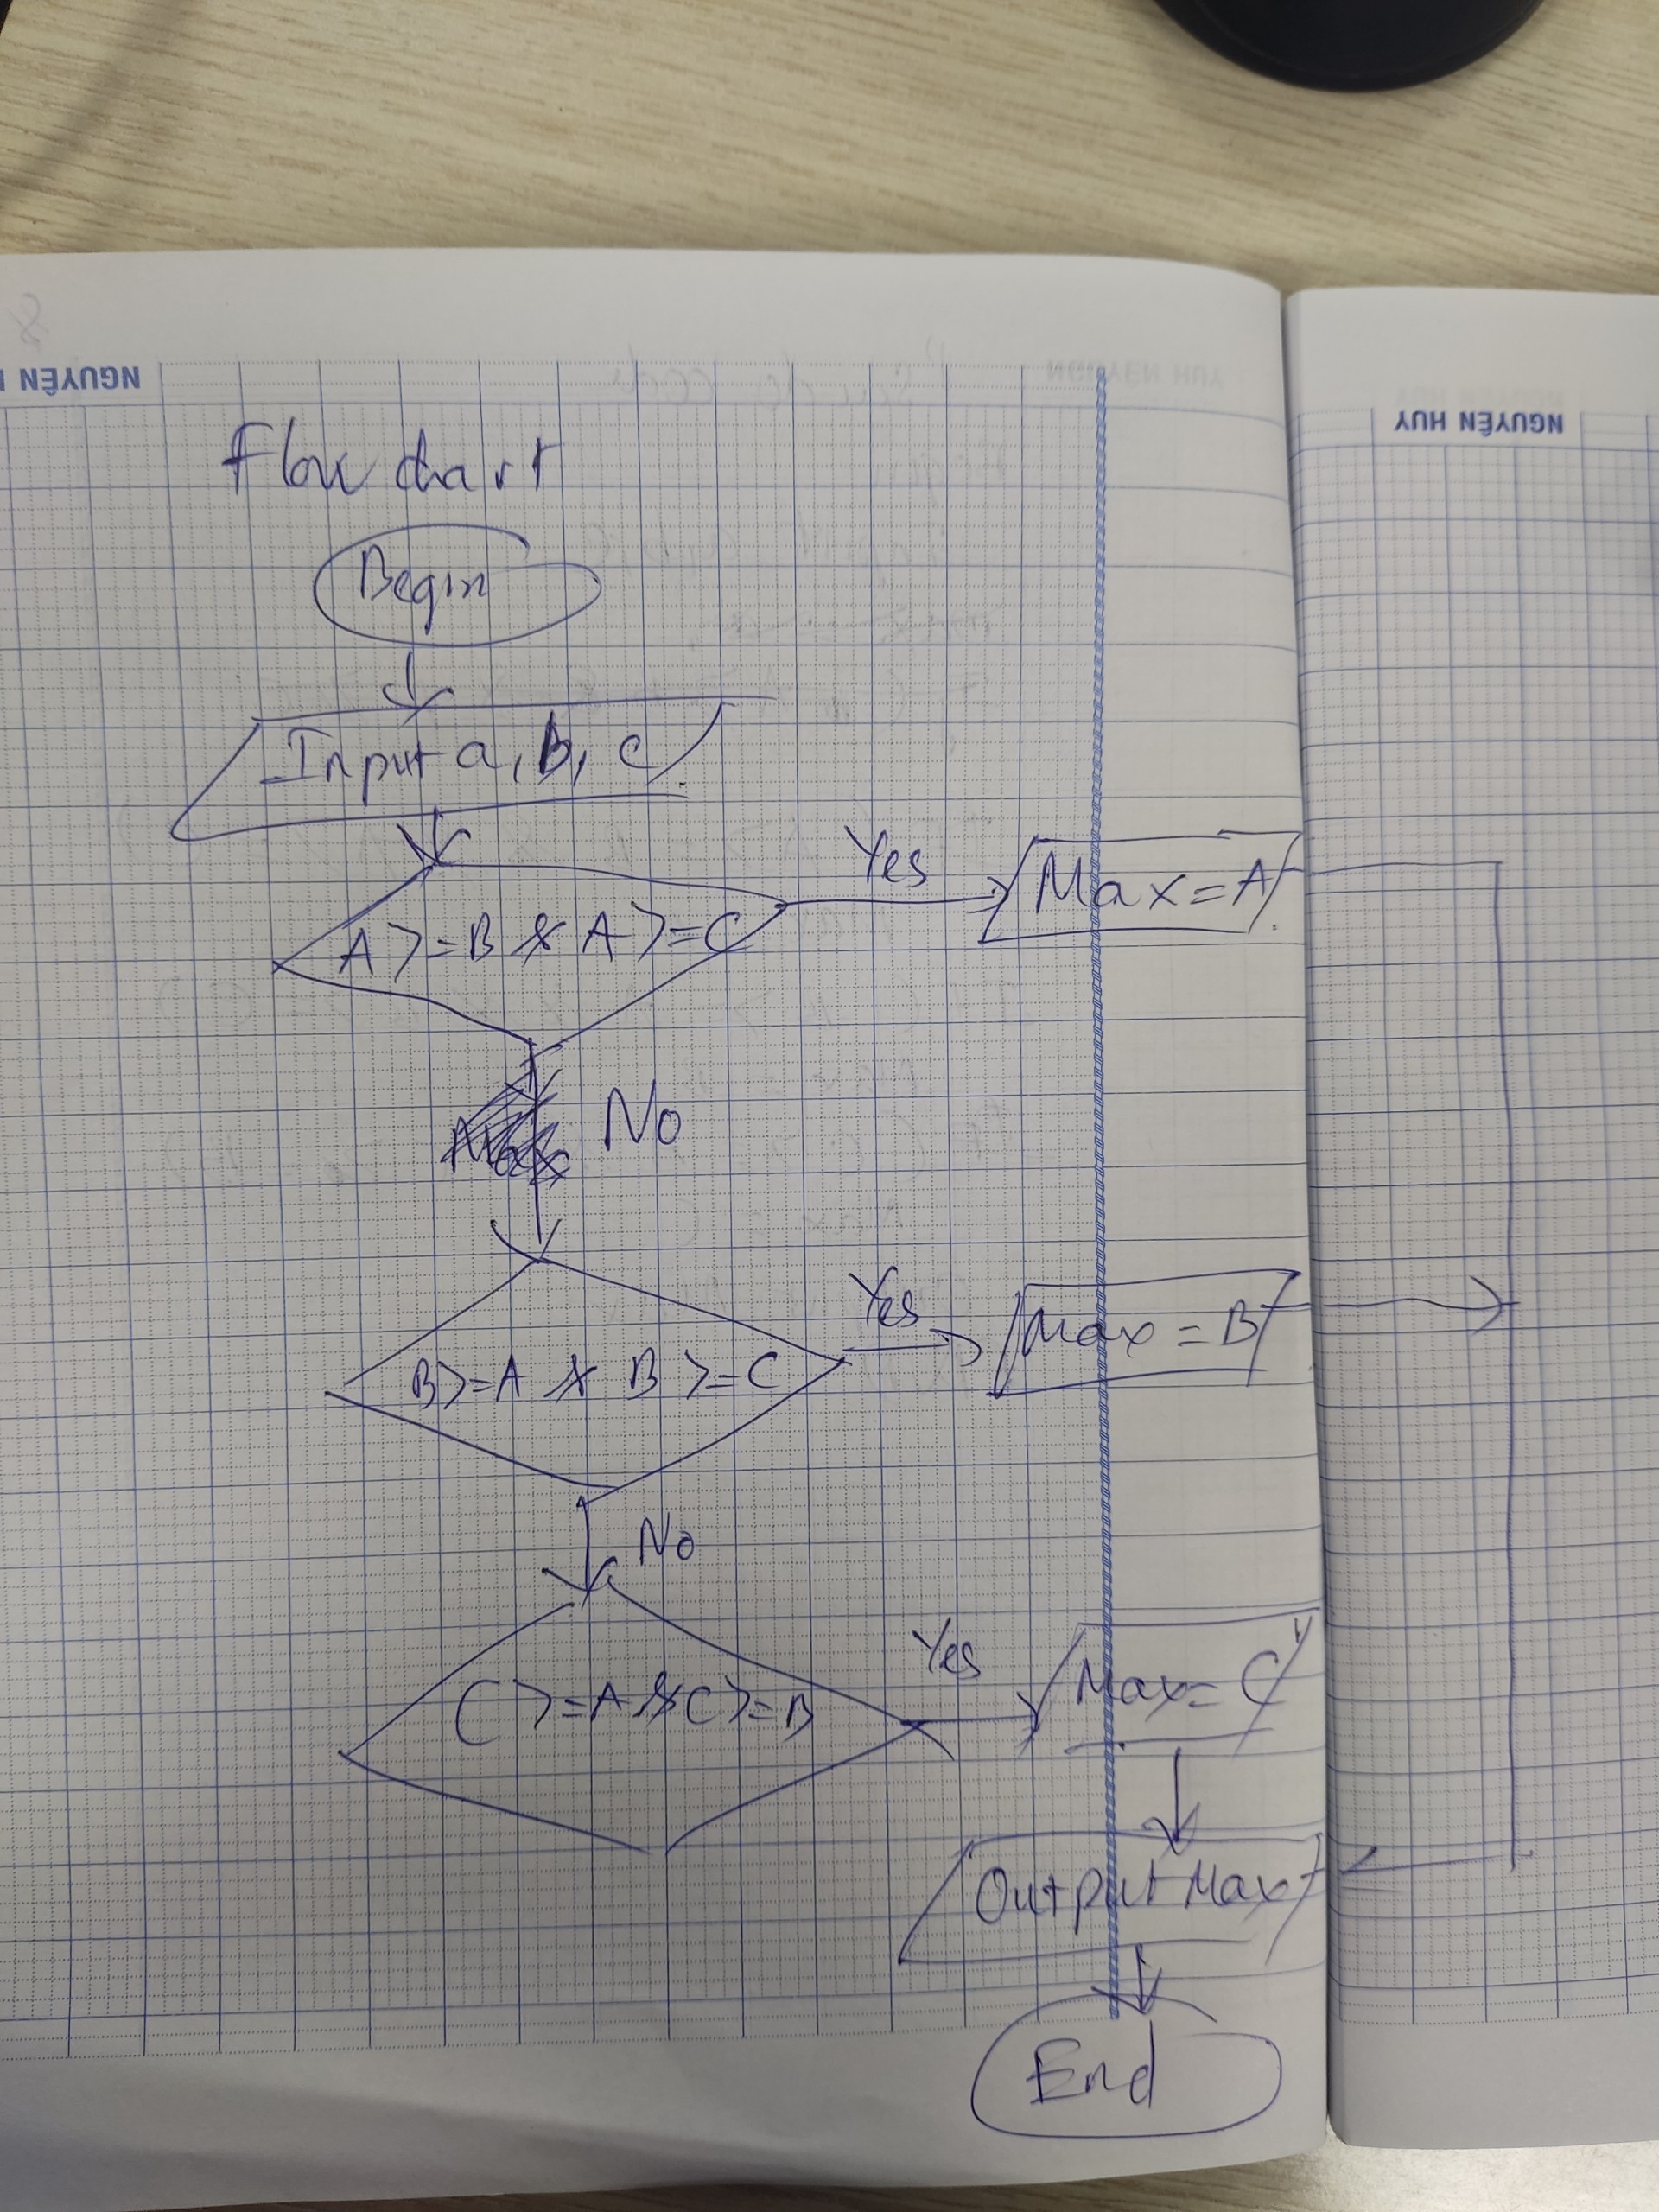 NGUYÊN
NGUYÊN HUY
Flow chart
Begin
Input a, B, C
A >= B & A >= C
Yes
Max = A
No
B >= A & B >= C
Yes
Max = B
No
C >= A & C >= B
Yes
Max = C
Output Max
End